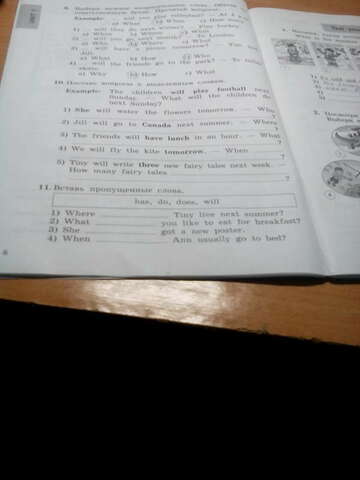 UNIT 1
Example: ... will you play volleyball? — At 4
a) What b) When c) How many
1) ... will they do next winter? — Play hockey.
a) When b) Where c) What
2) ... will you go next month? — To London.
a) Who b) Where c) What
3) ... will have a picnic tomorrow? — Tim
Jill.
a) What b) How c) Who
4) ... will the friends go to the park? — To
skate.
a) Why b) How c) What
10. Поставь вопросы к выделенным словам.
Example: The children will play football next
Sunday. — What will the children do
next Sunday?
1) She will water the flowers tomorrow. — Who
?
2) Jill will go to Canada next summer. — Where
?
3) The friends will have lunch in an hour. — What
?
4) We will fly the kite tomorrow. — When
?
5) Tiny will write three new fairy tales next week. —
How many fairy tales
?
11. Вставь пропущенные слова.
has, do, does, will
1) Where Tiny live next summer?
2) What you like to eat for breakfast?
3) She got a new poster.
4) When Ann usually go to bed?